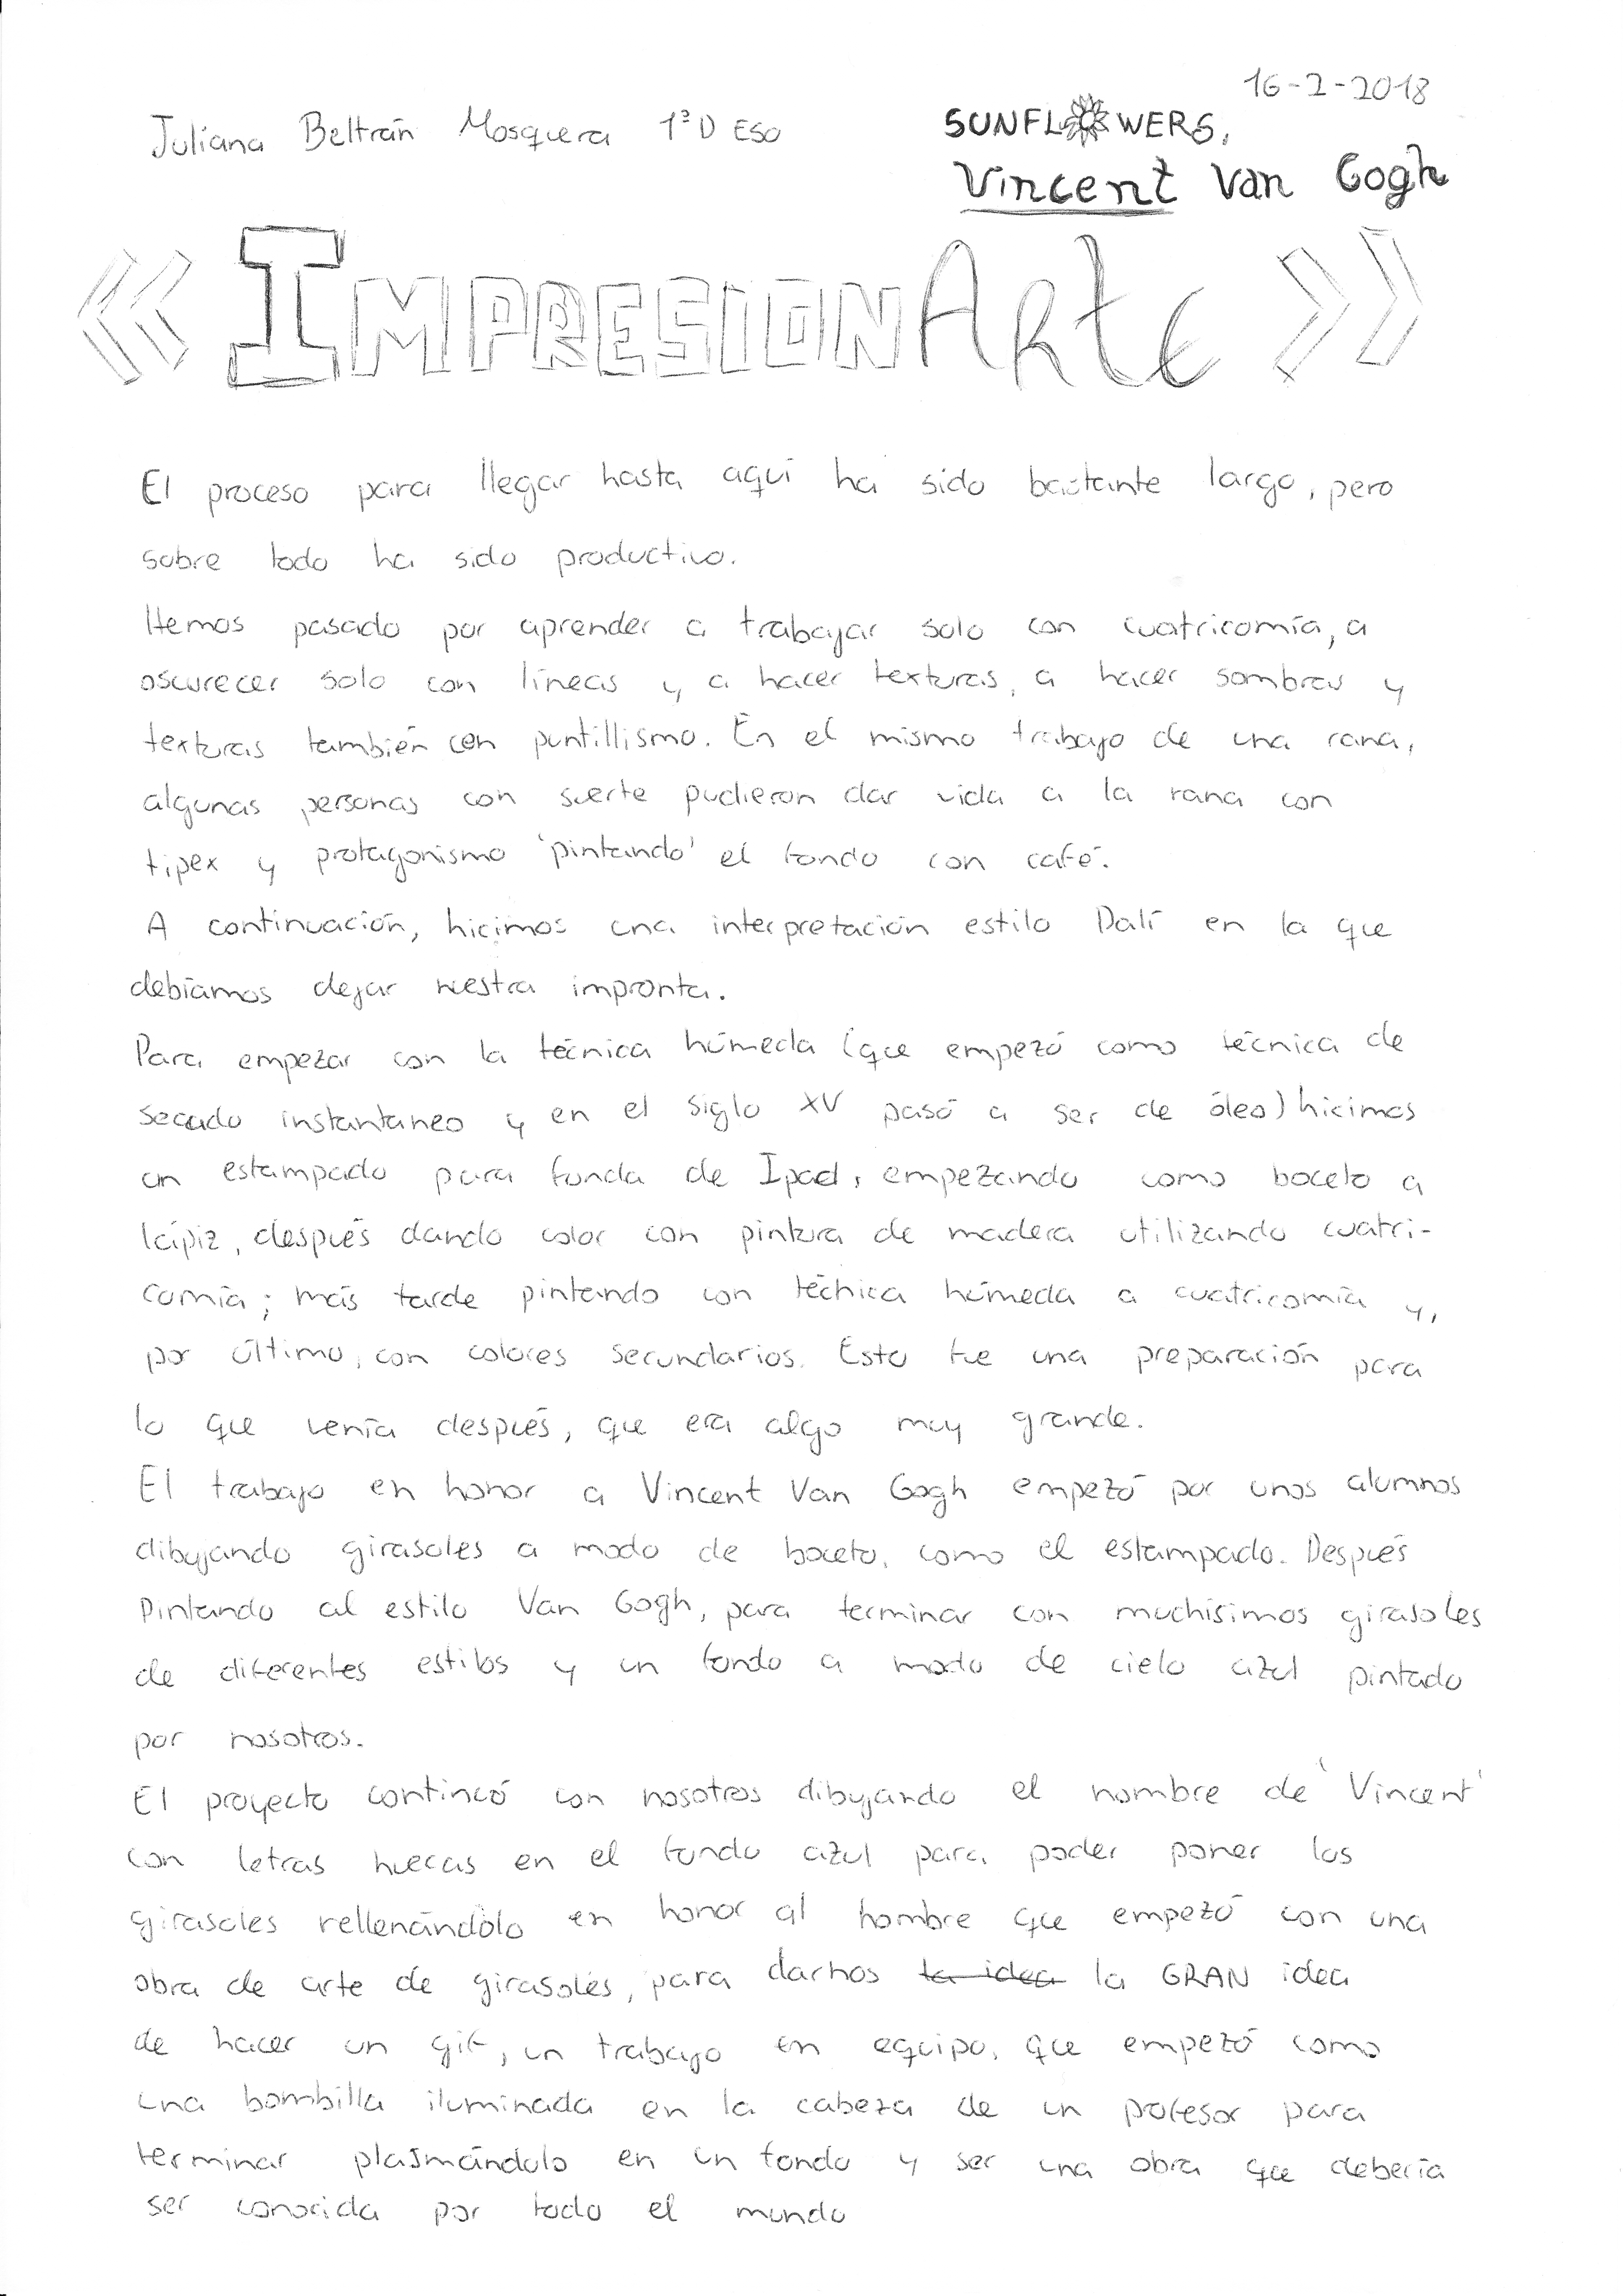 16-2-2018
Juliana Beltrán Mosquera 1ºD ESO
SUNFLOWERS,
Vincent Van Gogh
«IMPRESIONArte»
El proceso para llegar hasta aquí ha sido bastante largo, pero
sobre todo ha sido productivo.
Hemos pasado por aprender a trabajar solo con cuatricomía, a
oscurecer solo con líneas y a hacer texturas, a hacer sombras y
texturas también con puntillismo. En el mismo trabajo de una rana,
algunas personas con suerte pudieron dar vida a la rana con
tipex y protagonismo 'pintando' el fondo con café.
A continuación, hicimos una interpretación estilo Dalí en la que
debíamos dejar nuestra impronta.
Para empezar con la técnica húmeda (que empezó como técnica de
secado instantaneo y en el siglo XV pasó a ser de óleo) hicimos
un estampado para funda de Ipad, empezando como boceto a
lápiz, después dando color con pintura de madera utilizando cuatri-
comía; más tarde pintando con técnica húmeda a cuatricomía y,
por último, con colores secundarios. Esto fue una preparación para
lo que venía después, que era algo muy grande.
El trabajo en honor a Vincent Van Gogh empezó por unos alumnos
dibujando girasoles a modo de boceto, como el estampado. Después
pintando al estilo Van Gogh, para terminar con muchísimos girasoles
de diferentes estilos y un fondo a modo de cielo azul pintado
por nosotros.
El proyecto continuó con nosotros dibujando el nombre de 'Vincent'
con letras huecas en el fondo azul para poder poner los
girasoles rellenándolo en honor al hombre que empezó con una
obra de arte de girasoles, para darnos la idea la GRAN idea
de hacer un gif, un trabajo en equipo, que empezó como
una bombilla iluminada en la cabeza de un pofesor para
terminar plasmándolo en un fondo y ser una obra que debería
ser conocida por todo el mundo